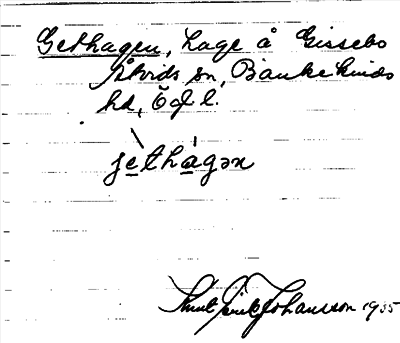 Gethagen, hage å Gissebo
Åtvids sn, Bankekinds
hd, Ögl.
jèthágən
Knut Erik Johansson 1935